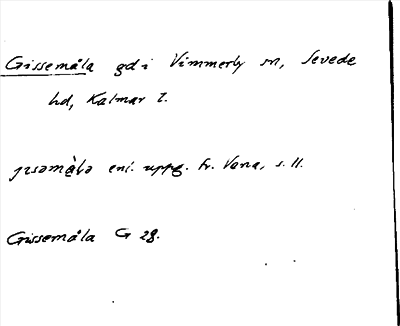 Gissemåla gd i Vimmerby sn, Sevede
hd, Kalmar l.
enl. uppg. fr. Vena, s. 11.
Gissemåla G 28.